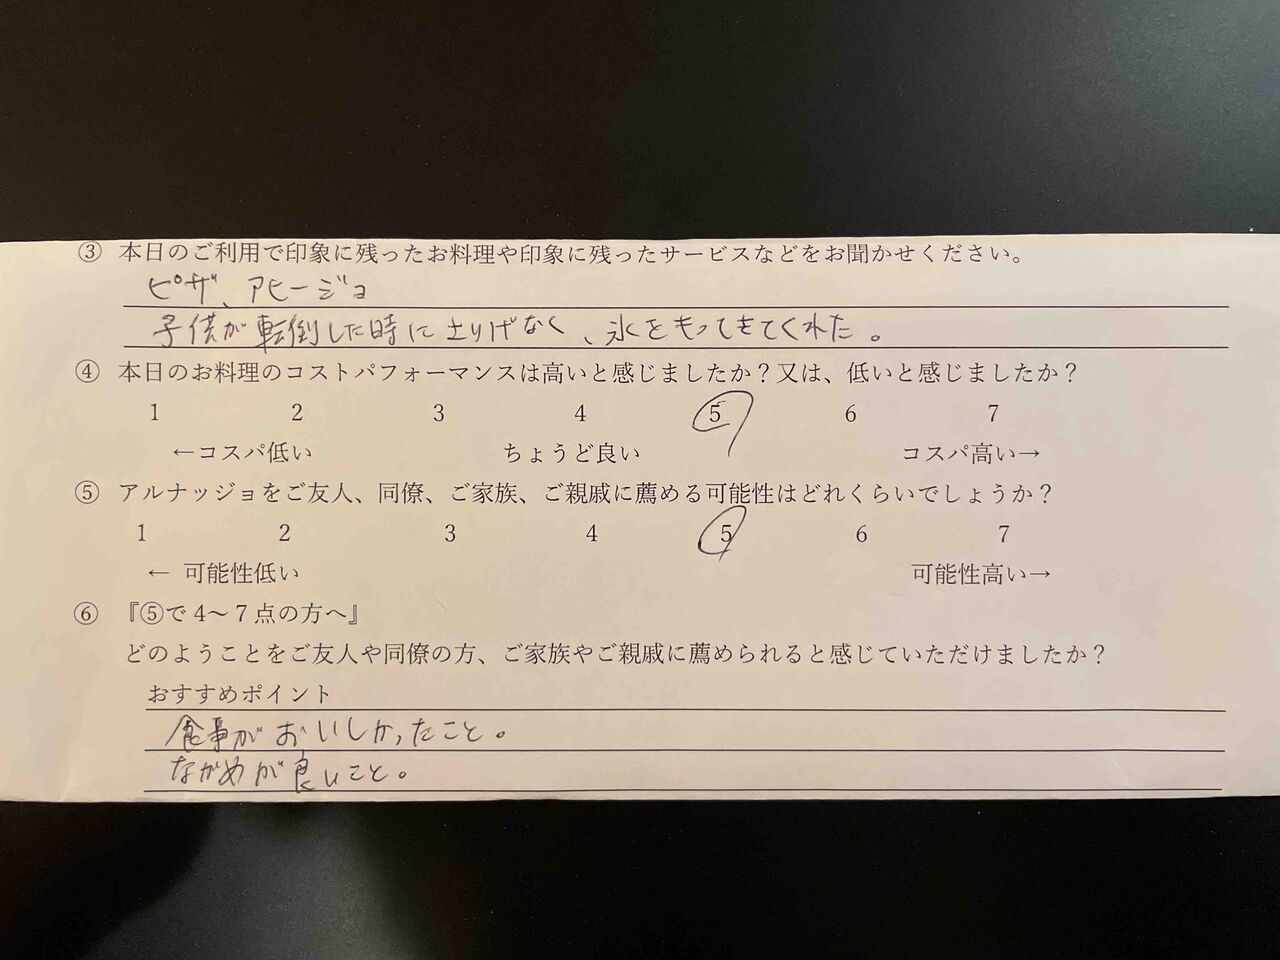 ③ 本日のご利用で印象に残ったお料理や印象に残ったサービスなどをお聞かせください。
ピザ、アヒージョ
子供が転倒した時にさりげなく、氷をもってきてくれた。
④ 本日のお料理のコストパフォーマンスは高いと感じましたか？又は、低いと感じましたか？
1 2 3 4 5 6 7
←コスパ低い ちょうど良い コスパ高い→
⑤ アルナッジョをご友人、同僚、ご家族、ご親戚に薦める可能性はどれくらいでしょうか？
1 2 3 4 5 6 7
← 可能性低い 可能性高い→
⑥ 『⑤で 4～７点の方へ』
どのようことをご友人や同僚の方、ご家族やご親戚に薦められると感じていただけましたか？
おすすめポイント
食事がおいしかったこと。
ながめが良いこと。